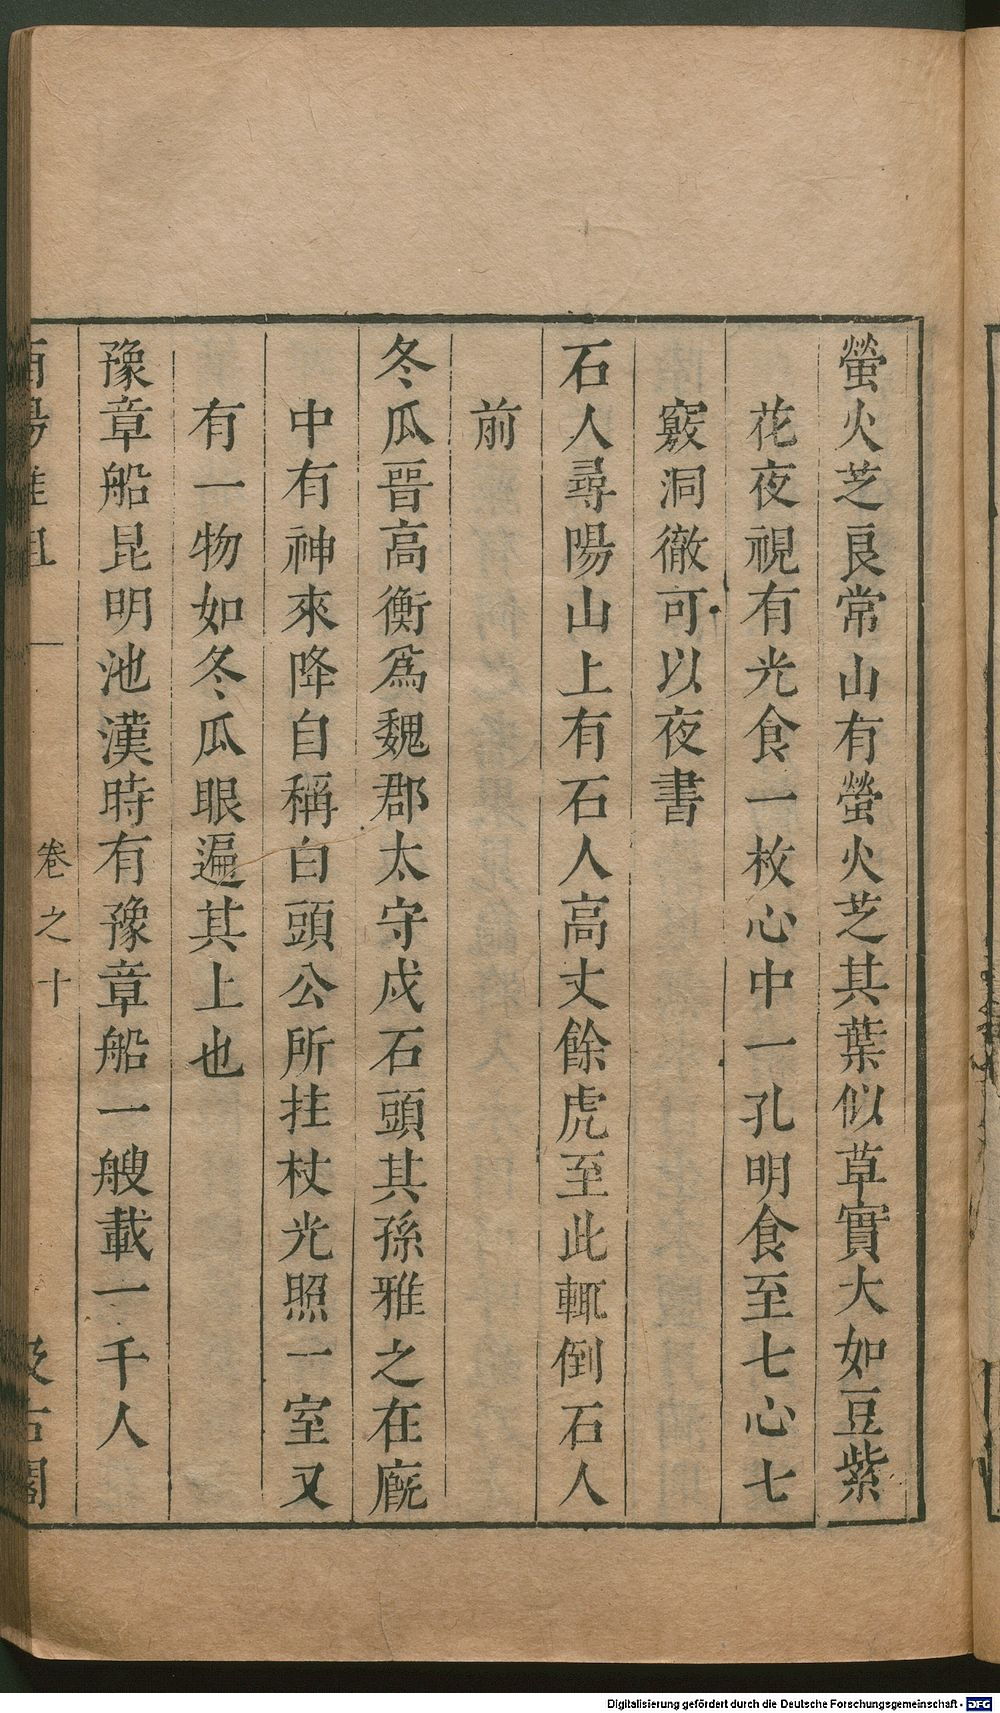 螢火芝良常山有螢火芝其葉似草實大如豆紫
花夜視有光食一枚心中一孔明食至七心七
竅洞徹可以夜書
石人尋陽山上有石人高丈餘虎至此輒倒石人
前
冬瓜晉高衡爲魏郡太守戍石頭其孫雅之在廐
中有神來降自稱白頭公所拄杖光照一室又
有一物如冬瓜眼遍其上也
豫章船昆明池漢時有豫章船一艘載一千人
酉陽雜俎 卷之十 汲古閣
Digitalisierung gefördert durch die Deutsche Forschungsgemeinschaft - DFG